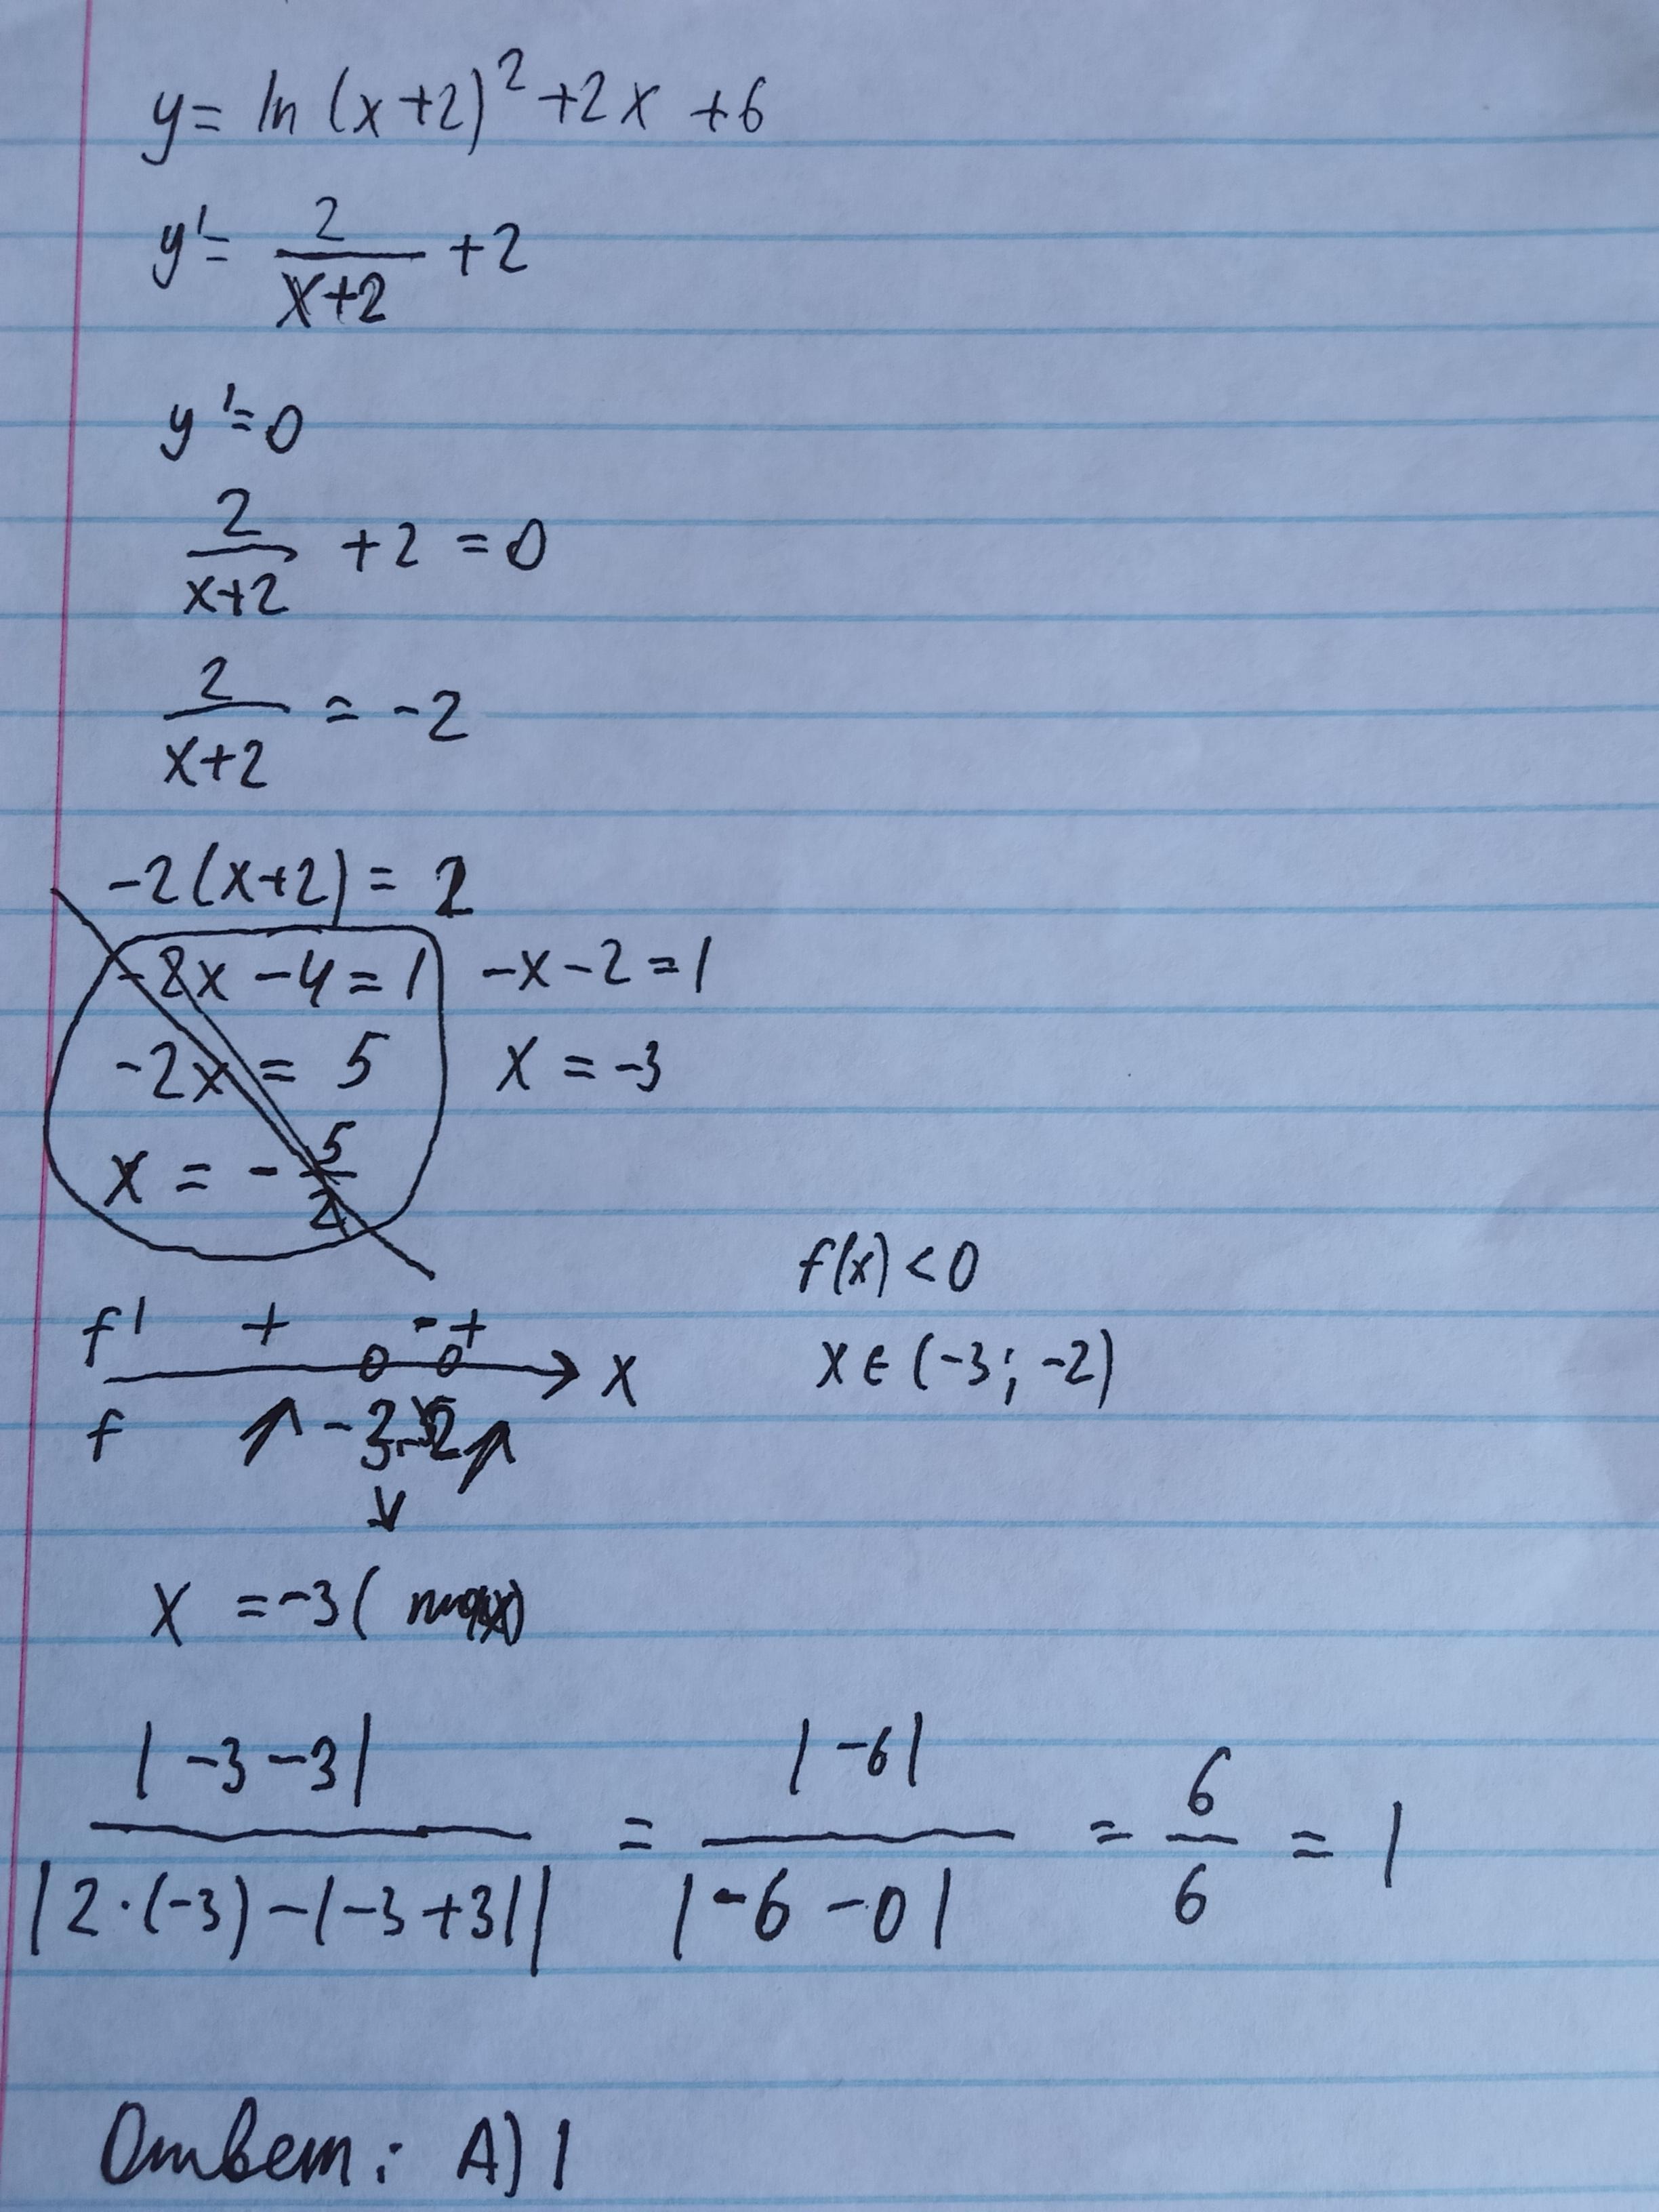 y = ln (x+2)² +2x +6
y' = 2/(x+2) +2
y' = 0
2/(x+2) +2 = 0
2/(x+2) = -2
-2(x+2) = 2
-2x -4 = 1
-2x = 5
x = -5/2
-x-2 = 1
x = -3
f' + - + x
f -3 -2
f(x) < 0
x ∈ (-3; -2)
x = -3 (max)
|-3-3| / |2·(-3)-|-3+3|| = |-6| / |-6-0| = 6/6 = 1
Ответ: А) 1